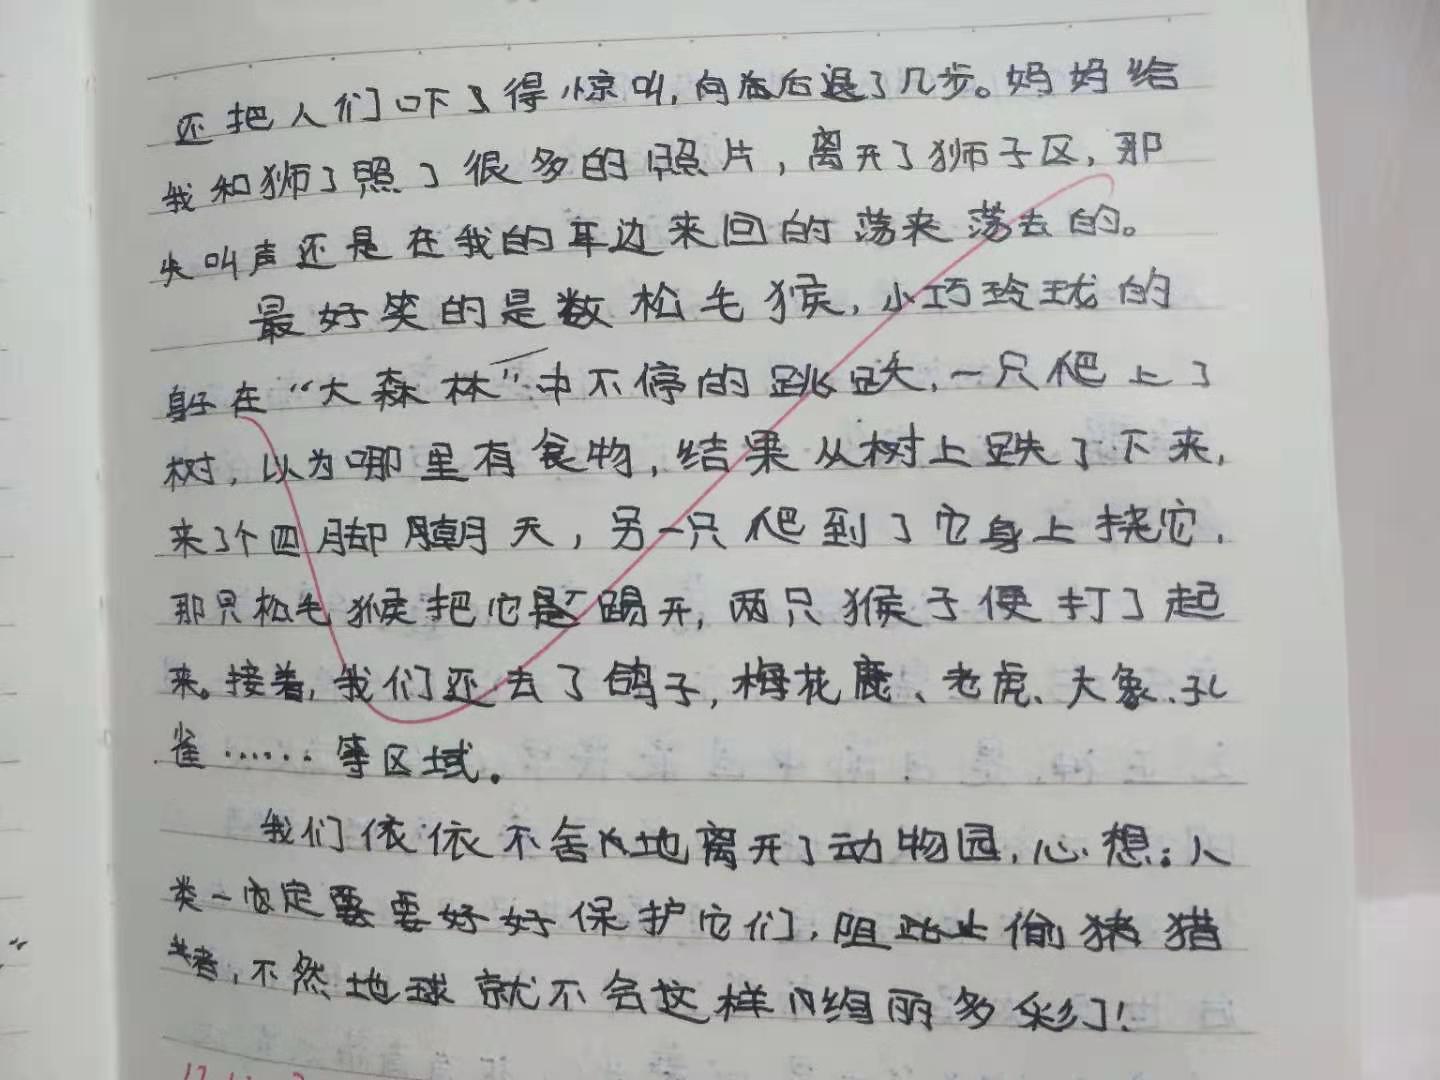 还把人们吓得惊叫，向后退了几步。妈妈给
我和狮子照了很多的照片，离开了狮子区，那
尖叫声还是在我的耳边来回的荡来荡去的。
最好笑的是数松毛猴，小巧玲珑的
身子在“大森林”中不停的跳跃，一只爬上了
树，以为哪里有食物，结果从树上跌了下来，
来了个四脚朝天，另一只爬到了它身上挠它，
那只松毛猴把它踢开，两只猴子便打了起
来。接着，我们还去了鸽子，梅花鹿、老虎、大象、孔
雀……等区域。
我们依依不舍地离开了动物园，心想：人
类一定要好好保护它们，阻止偷猎
者，不然地球就不会这样绚丽多彩了！